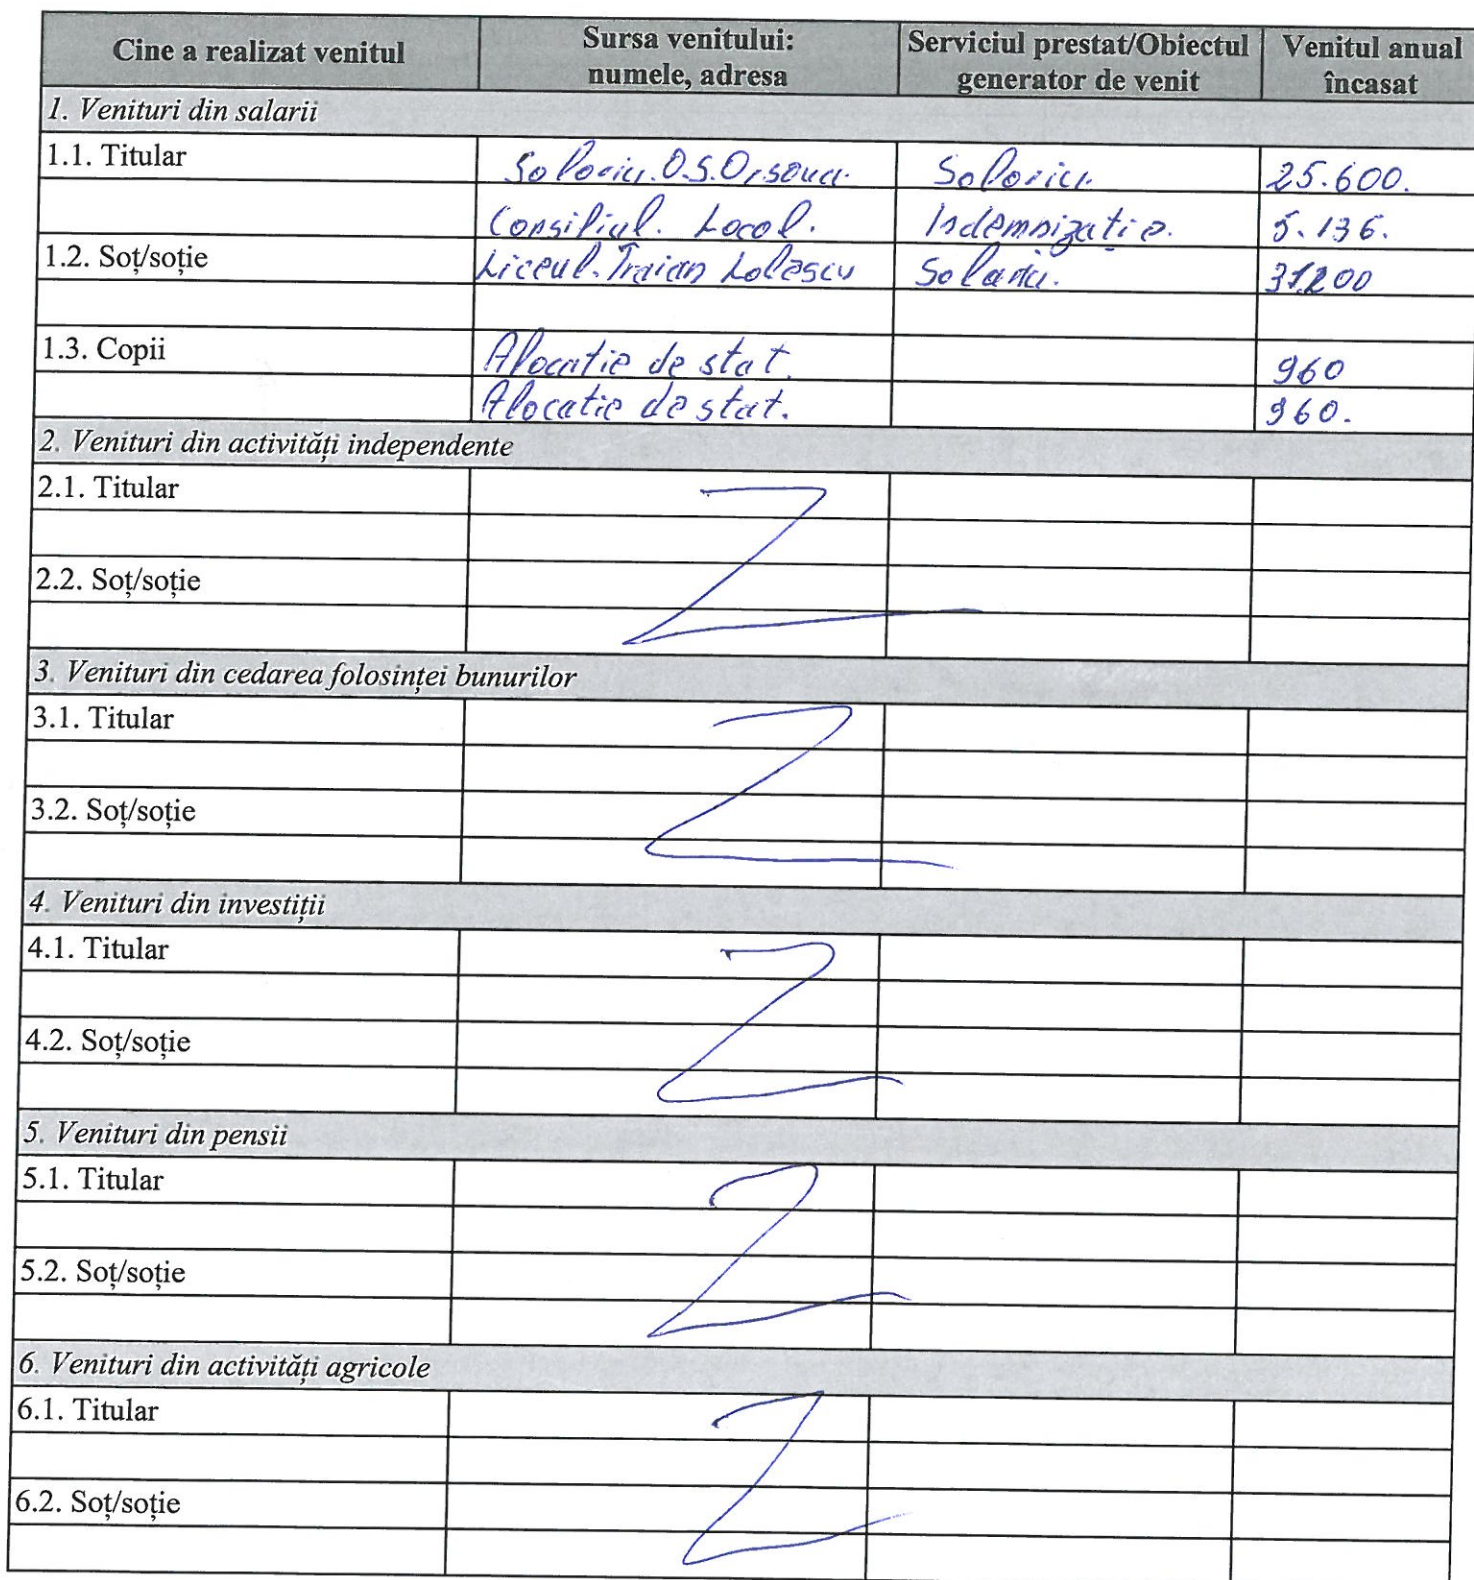 Cine a realizat venitul
Sursa venitului:
numele, adresa
Serviciul prestat/Obiectul
generator de venit
Venitul anual
încasat
1. Venituri din salarii
1.1. Titular Salariu. O.S. Orsova. Salariu. 25.600.
Consiliul. Local. Indemnizatie. 5.136.
1.2. Soț/soție Liceul. Traian Lalescu Salariu. 31.200
1.3. Copii Alocatie de stat. 960
Alocatie de stat. 960.
2. Venituri din activități independente
2.1. Titular
2.2. Soț/soție
3. Venituri din cedarea folosinței bunurilor
3.1. Titular
3.2. Soț/soție
4. Venituri din investiții
4.1. Titular
4.2. Soț/soție
5. Venituri din pensii
5.1. Titular
5.2. Soț/soție
6. Venituri din activități agricole
6.1. Titular
6.2. Soț/soție